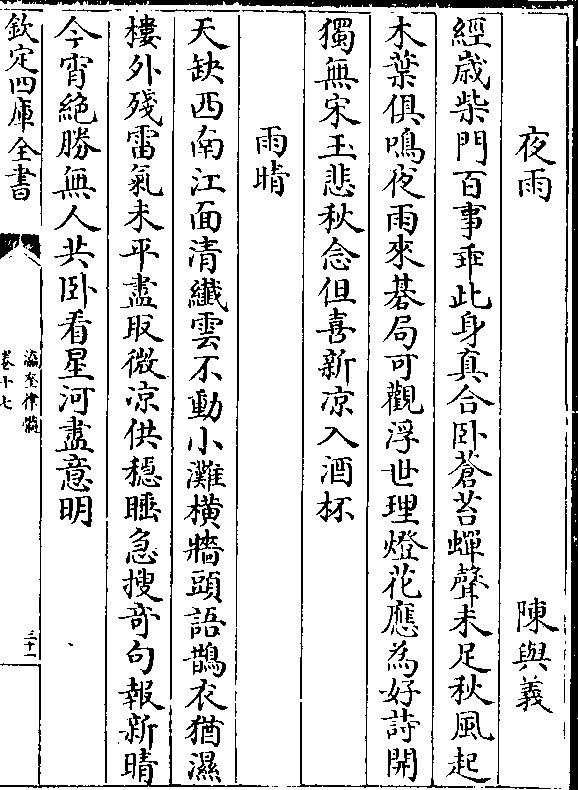 夜雨
陳與義
經歲柴門百事乖此身真合卧蒼苔蟬聲未足秋風起
木葉俱鳴夜雨來棊局可觀浮世理燈花應為好詩開
獨無宋玉悲秋念但喜新凉入酒杯
雨晴
天缺西南江面清纖雲不動小灘橫牆頭語鵲衣猶濕
樓外殘雷氣未平盡取微凉供穩睡急搜奇句報新晴
今宵絶勝無人共卧看星河盡意明
欽定四庫全書
瀛奎律髓
卷十七
三十一